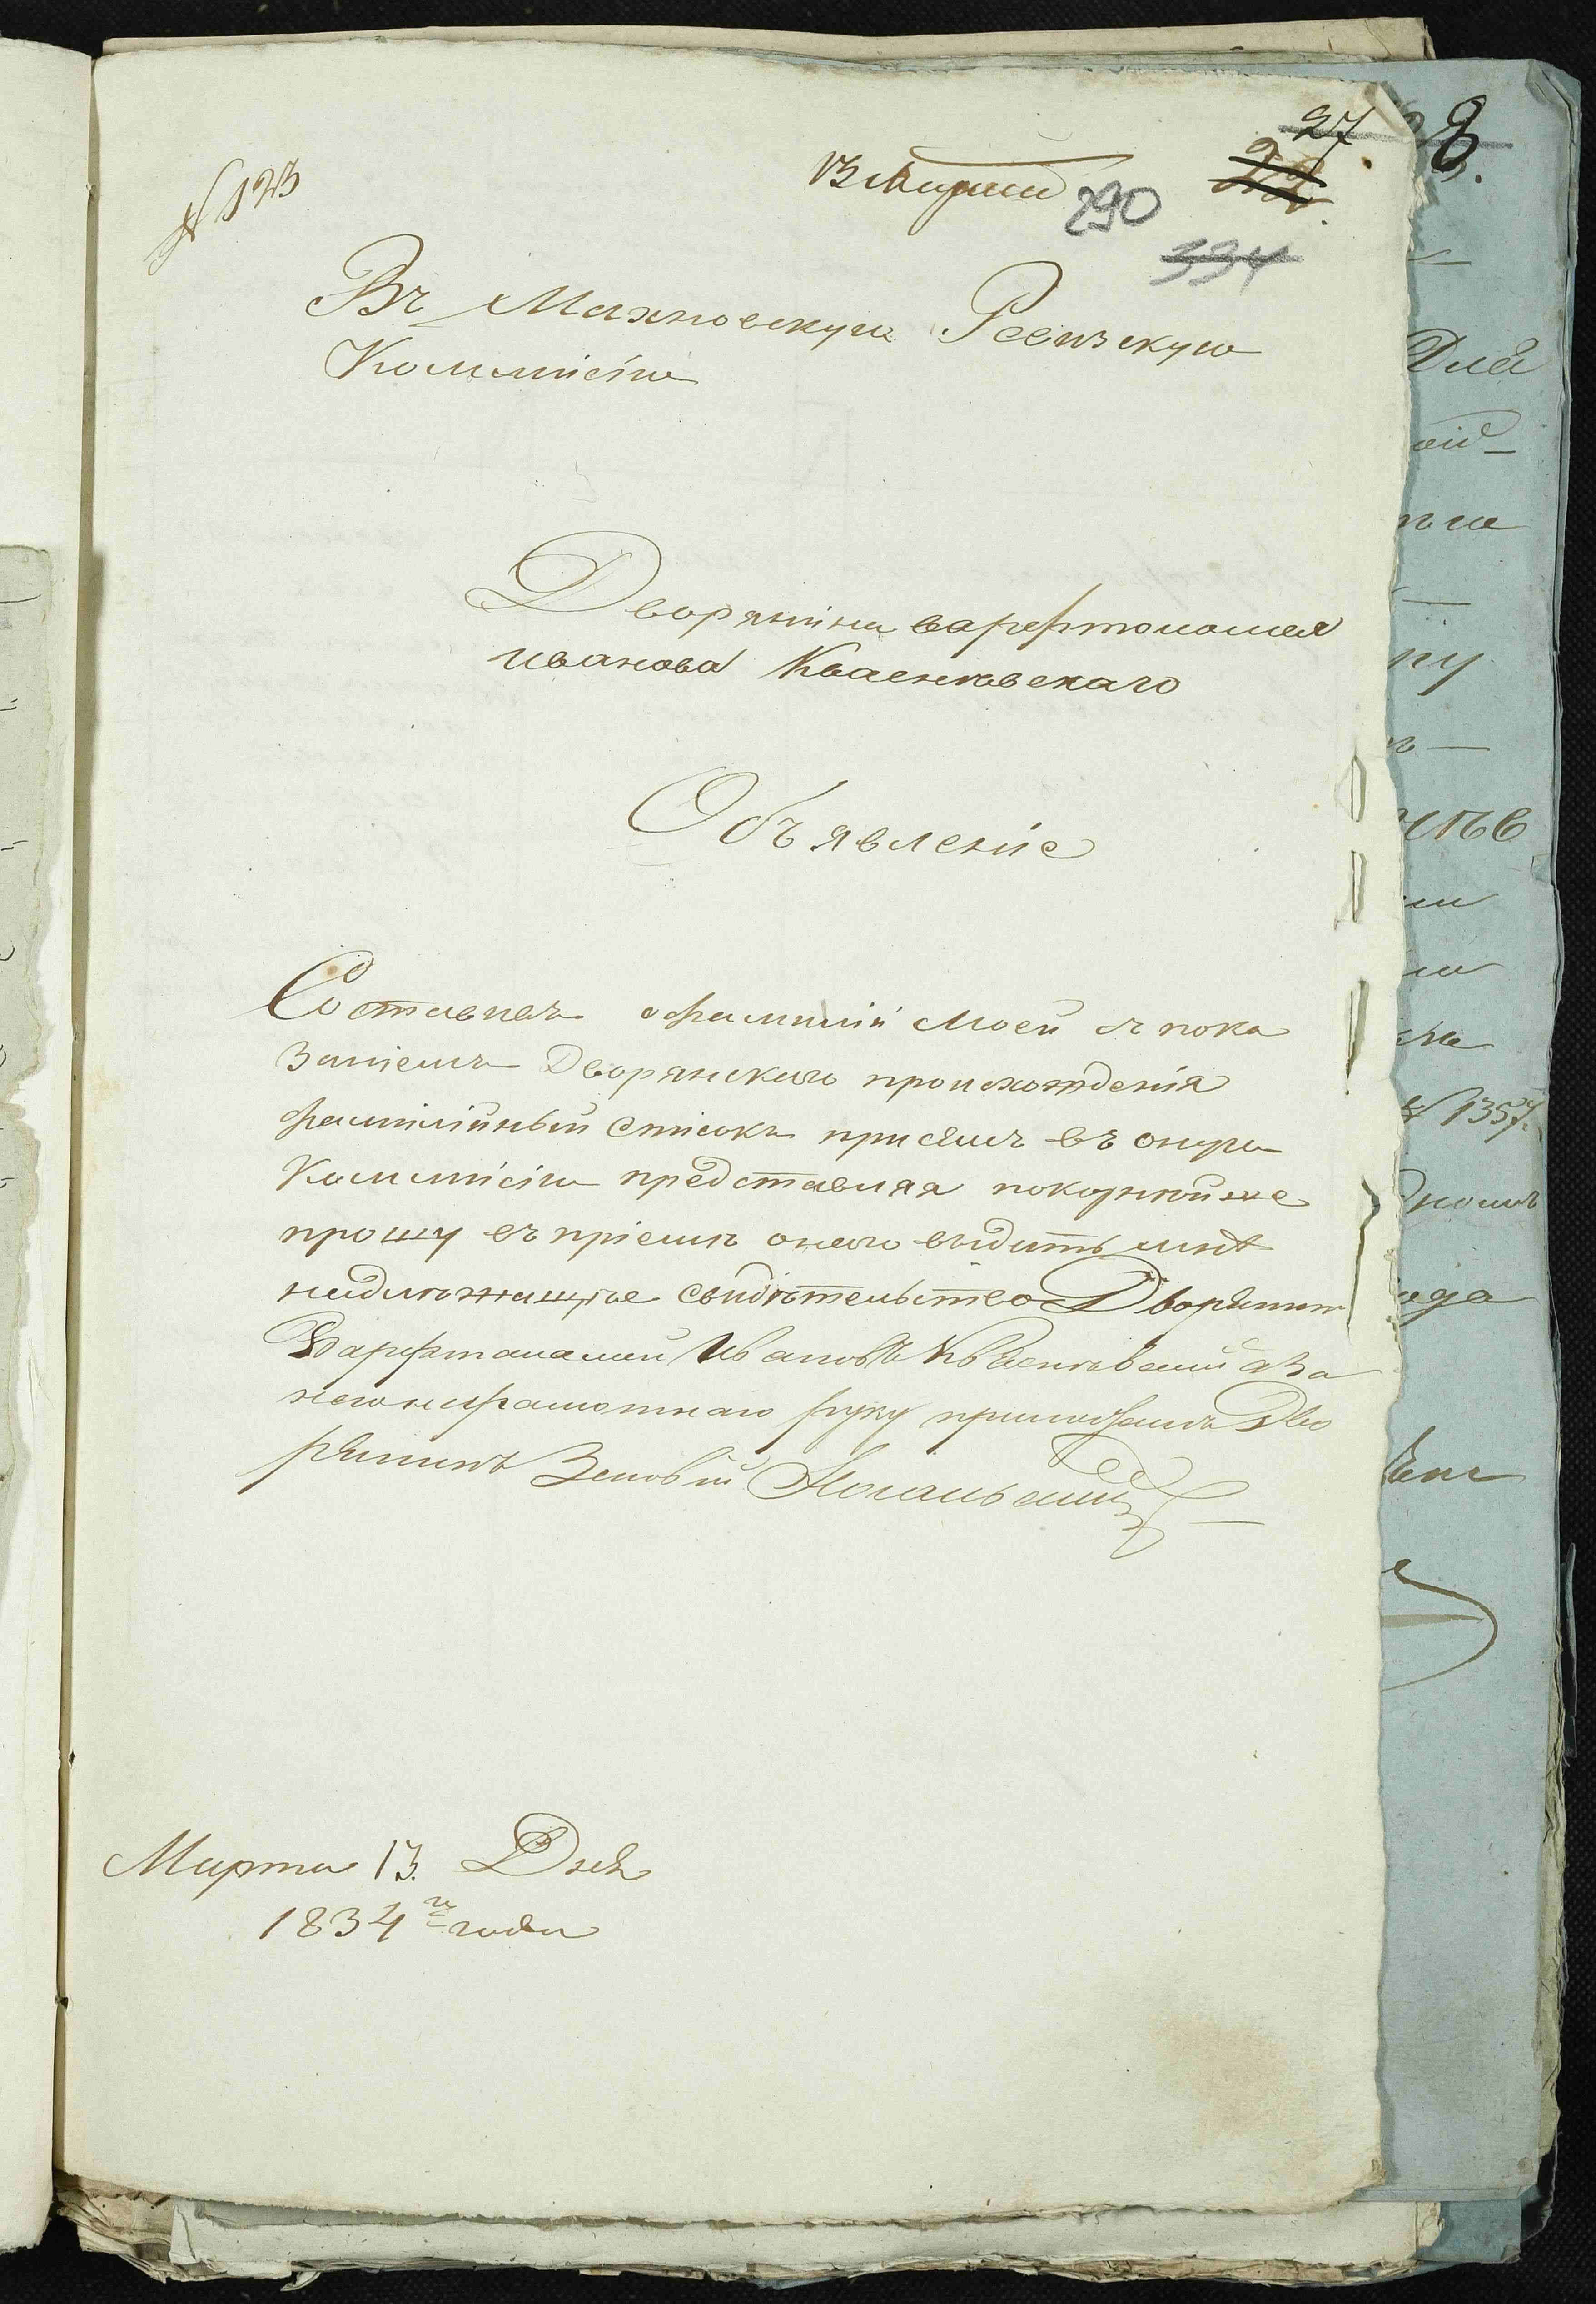 № 123
13 Марта
27
290
334
Въ Махновскую Ревизскую
Коммисію
Дворянина варфтоломея
иванова Квасневскаго
Объявленіе
Составивъ о фамиліи моей съ пока
заніемъ Дворянскаго происхожденія
фамилійный списокъ при семъ въ оную
Коммисію представляя покорнѣйше
прошу въ пріемѣ онаго выдать мнѣ
надлѣжащѣе свидѣтельство Дворянинъ
Варфталамей Ивановъ Квасневский а за
него неграмотнаго руку приложилъ Дво
рянинъ Зеновій
Марта 13. Дня
1834 го года
8.
Для
ой
ну
№ 1357.
года